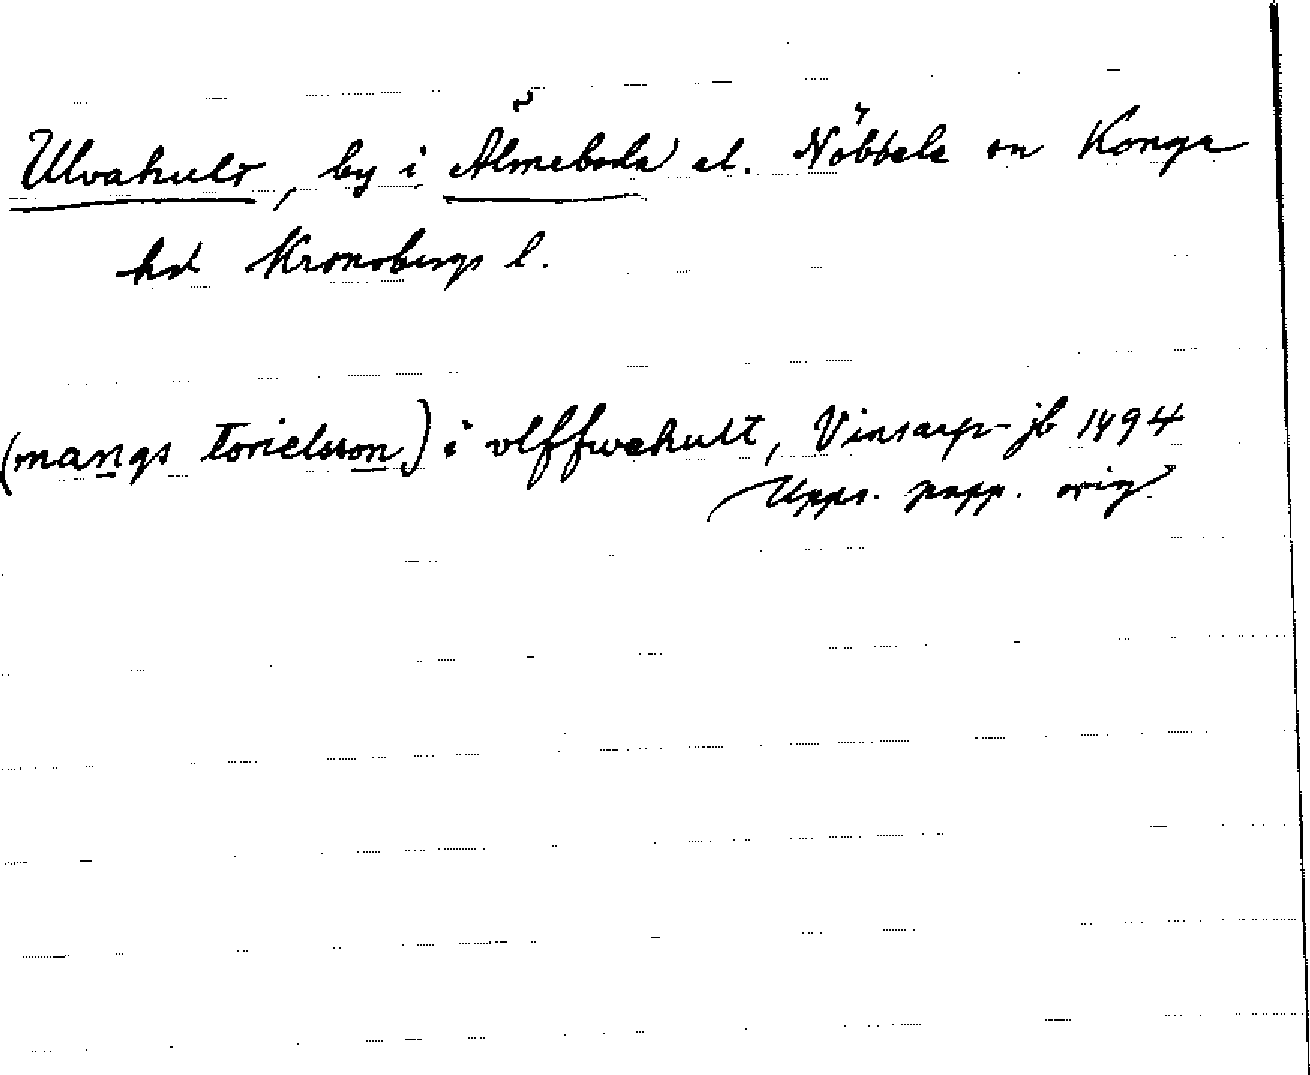 Ulvahult, by i Älmeboda el. Nöbbele sn Konga
hd Kronobergs l.
(mangs torielsson) i vlffwahult, Vinsarp-jb 1494
Upps. papp. orig.